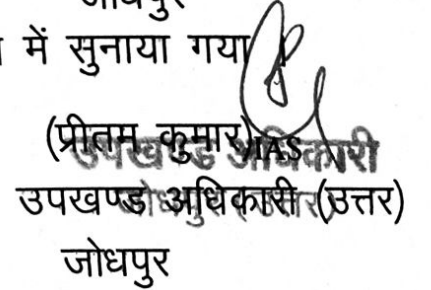 जोधपुर
में सुनाया गया
(प्रीतम कुमार)IAS
उपखण्ड अधिकारी
उपखण्ड अधिकारी (उत्तर)
जोधपुर